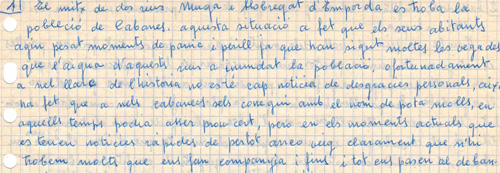 4) El mitx de dos rius, Muga i Llobregat d'Empordà es troba la
població de Cabanes, aquesta situació a fet que els seus abitants
agin pasat moments de panic i perill ja que han sigut moltes les vegades
que l'aigua d'aquests rius a inundat la població, afortunadament
a nel llarc de l'historia no esté cap noticia de desgracies personals, aixo
ha fet que a nels cabanecs sels conegui amb el nom de pota molls, en
aquells temps podia asser prou cert, pero en els moments actuals que
es tenen noticies rapides de pertot arreo veig clarament que n'hi
trobem molts que ens fan companyia i fins i tot ens pasen al deban.